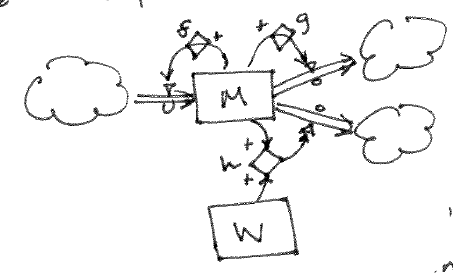 f + + g
M
+
h
+
W